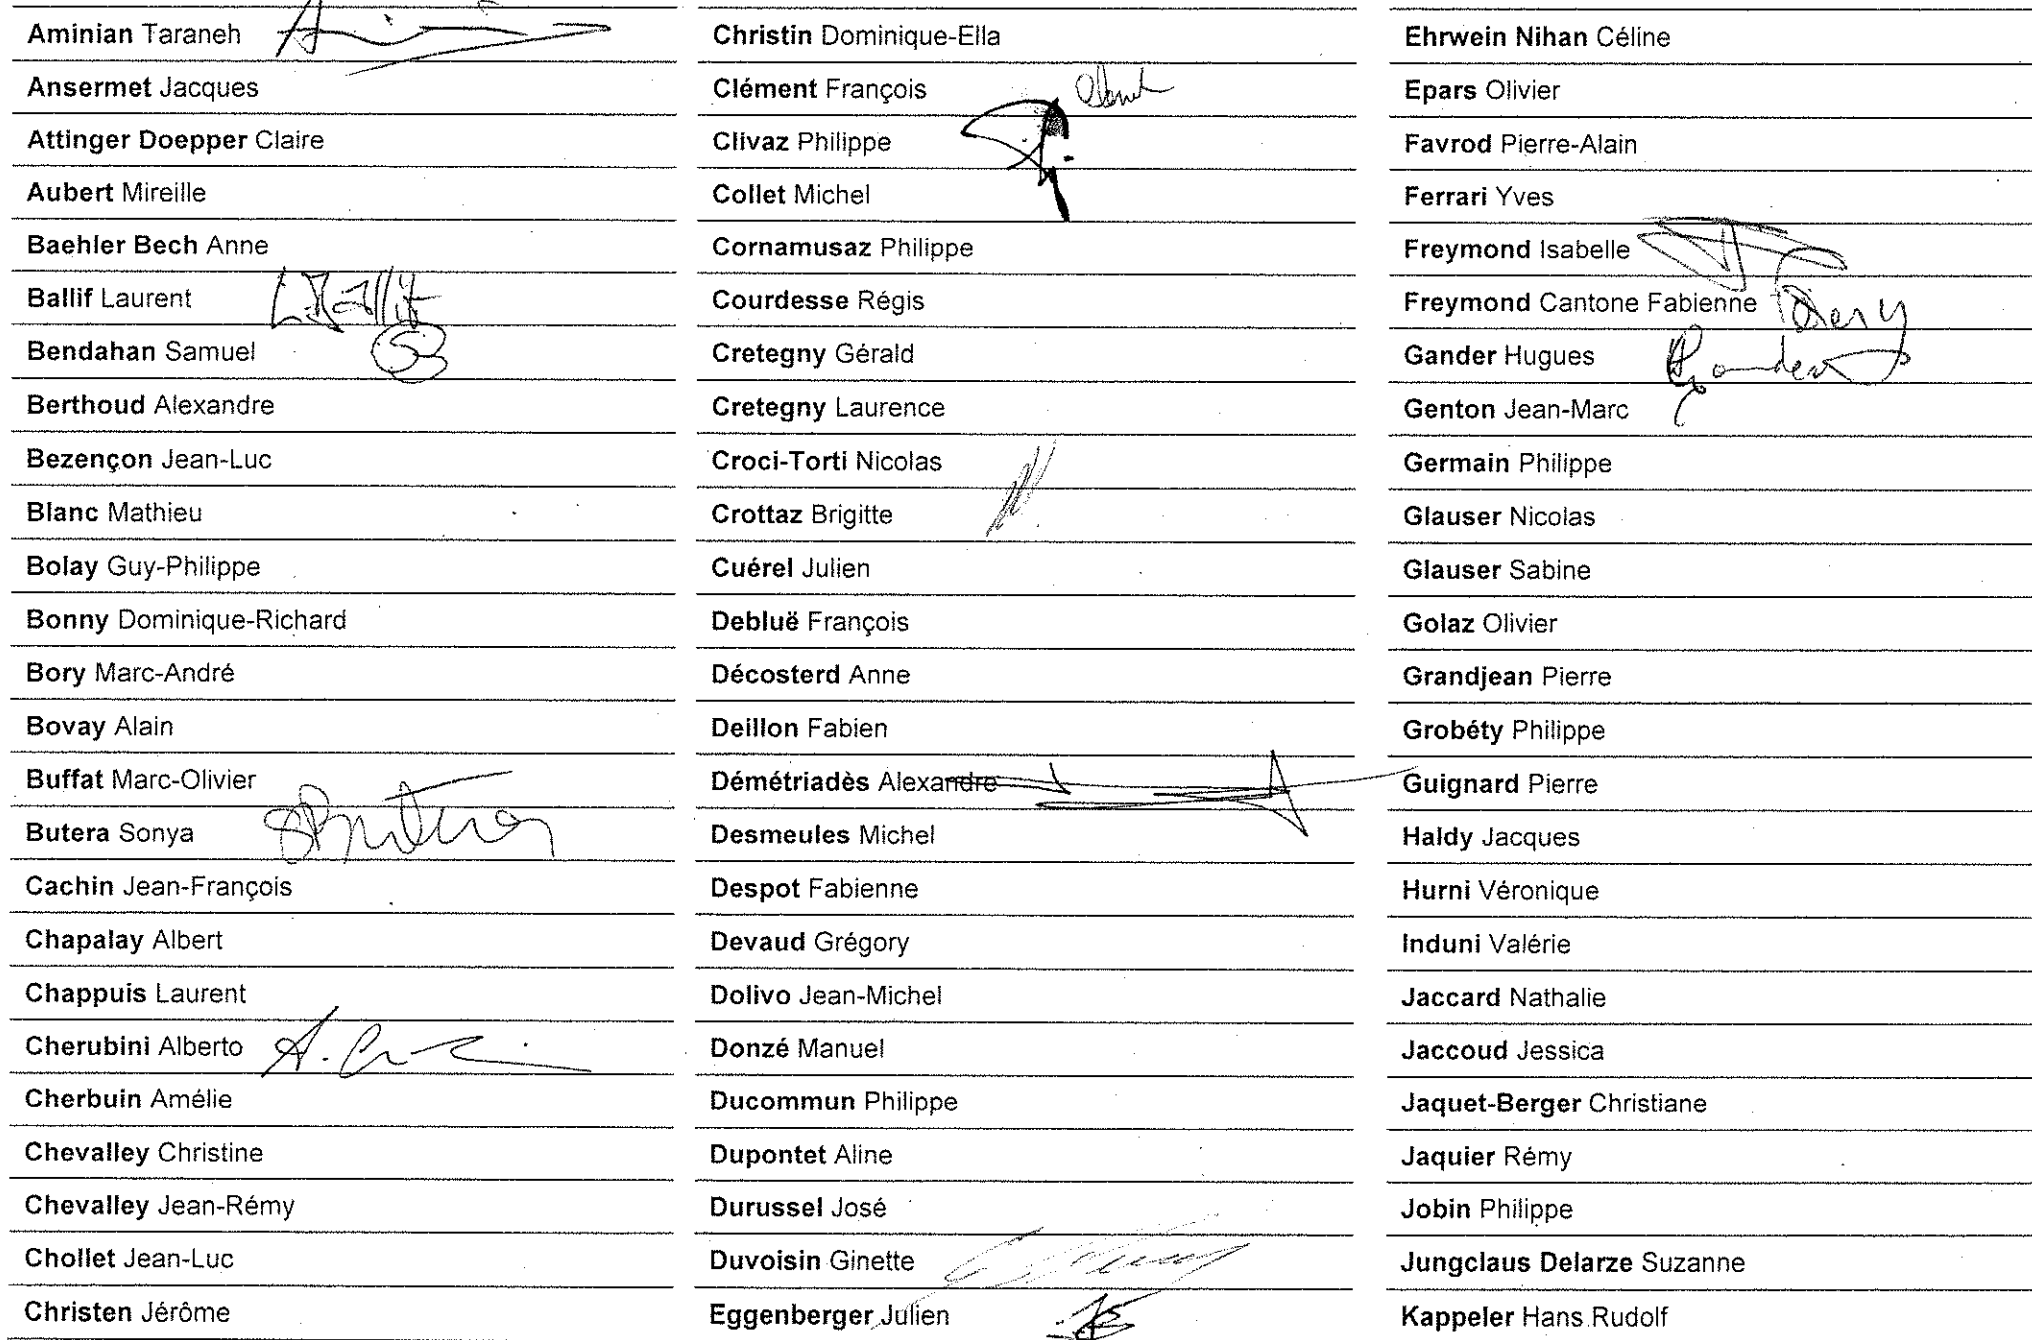 Aminian Taraneh
Ansermet Jacques
Attinger Doepper Claire
Aubert Mireille
Baehler Bech Anne
Ballif Laurent LBallif
Bendahan Samuel SB
Berthoud Alexandre
Bezençon Jean-Luc
Blanc Mathieu
Bolay Guy-Philippe
Bonny Dominique-Richard
Bory Marc-André
Bovay Alain
Buffat Marc-Olivier
Butera Sonya
Cachin Jean-François
Chapalay Albert
Chappuis Laurent
Cherubini Alberto
Cherbuin Amélie
Chevalley Christine
Chevalley Jean-Rémy
Chollet Jean-Luc
Christen Jérôme
Christin Dominique-Ella
Clément François
Clivaz Philippe
Collet Michel
Cornamusaz Philippe
Courdesse Régis
Cretegny Gérald
Cretegny Laurence
Croci-Torti Nicolas
Crottaz Brigitte
Cuérel Julien
Debluë François
Décosterd Anne
Deillon Fabien
Démétriadès Alexandre
Desmeules Michel
Despot Fabienne
Devaud Grégory
Dolivo Jean-Michel
Donzé Manuel
Ducommun Philippe
Dupontet Aline
Durussel José
Duvoisin Ginette
Eggenberger Julien
Ehrwein Nihan Céline
Epars Olivier
Favrod Pierre-Alain
Ferrari Yves
Freymond Isabelle
Freymond Cantone Fabienne
Gander Hugues Gander
Genton Jean-Marc
Germain Philippe
Glauser Nicolas
Glauser Sabine
Golaz Olivier
Grandjean Pierre
Grobéty Philippe
Guignard Pierre
Haldy Jacques
Hurni Véronique
Induni Valérie
Jaccard Nathalie
Jaccoud Jessica
Jaquet-Berger Christiane
Jaquier Rémy
Jobin Philippe
Jungclaus Delarze Suzanne
Kappeler Hans Rudolf